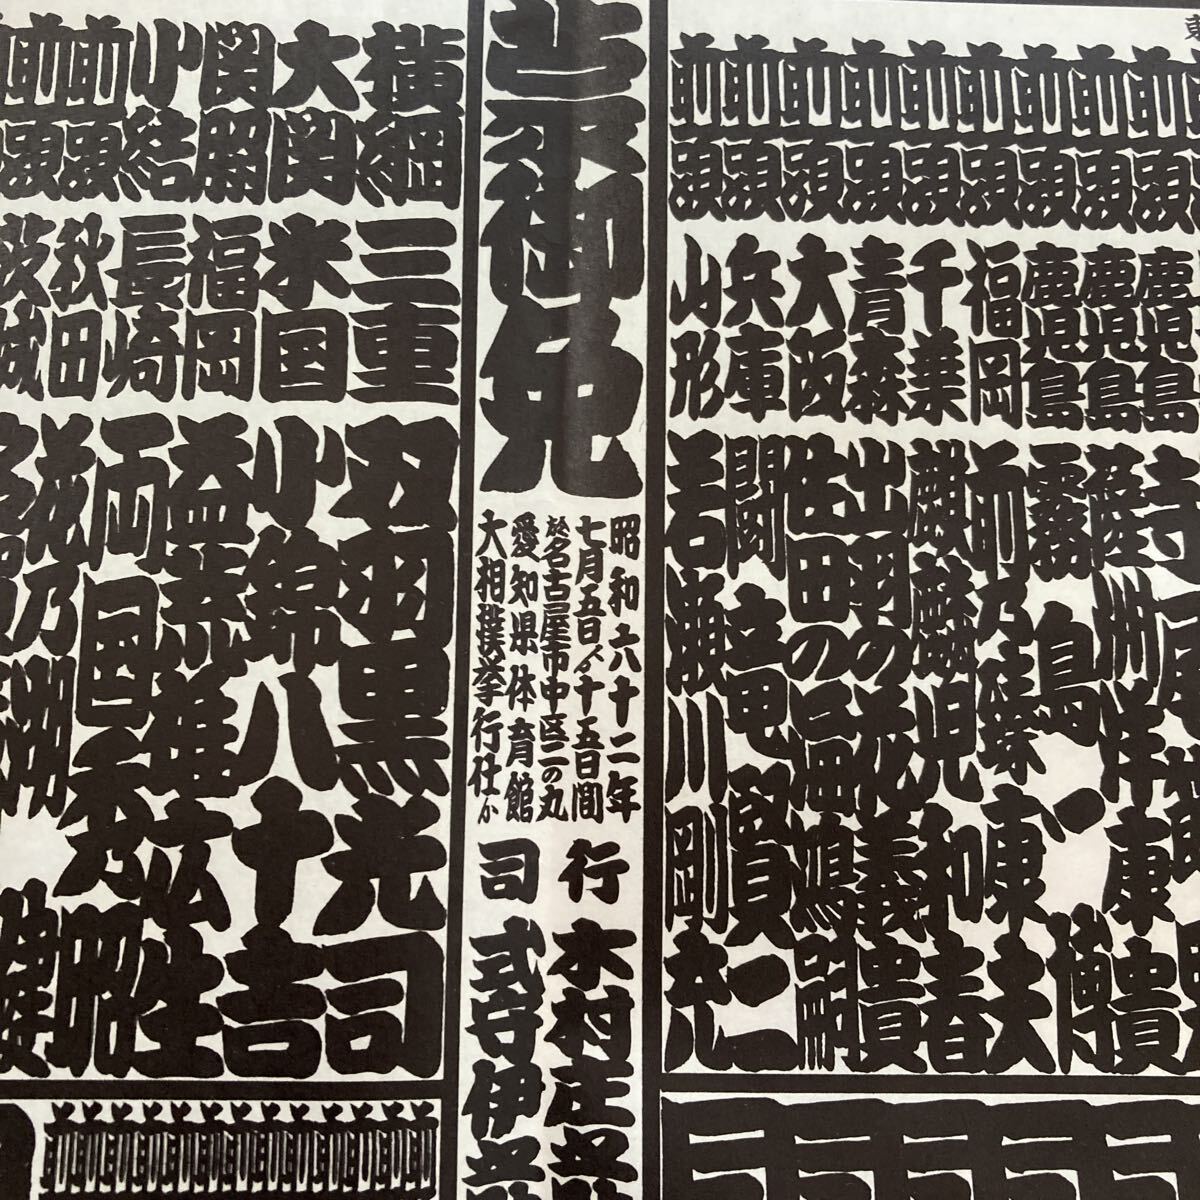 東
前頭 鹿児島 寺
前頭 鹿児島 薩洲洋康貴
前頭 鹿児島 霧島一博
前頭 福岡 前乃臻康夫
前頭 千葉 麒麟児和春
前頭 青森 出羽の花義貴
前頭 大阪 佐田の海鴻嗣
前頭 兵庫 闘竜賢一
前頭 山形 若瀬川剛充
蒙御免
昭和六十二年
七月五日ゟ十五日間
於名古屋市中区二の丸
愛知県体育館
大相撲挙行仕候
行司
木村庄之
式守伊之
横綱 三重 双羽黒光司
大関 米国 小錦八十吉
関脇 福岡 益荒雄広生
小結 長崎 両国秀昭
前頭 秋田 花乃湖健
前頭 茨城